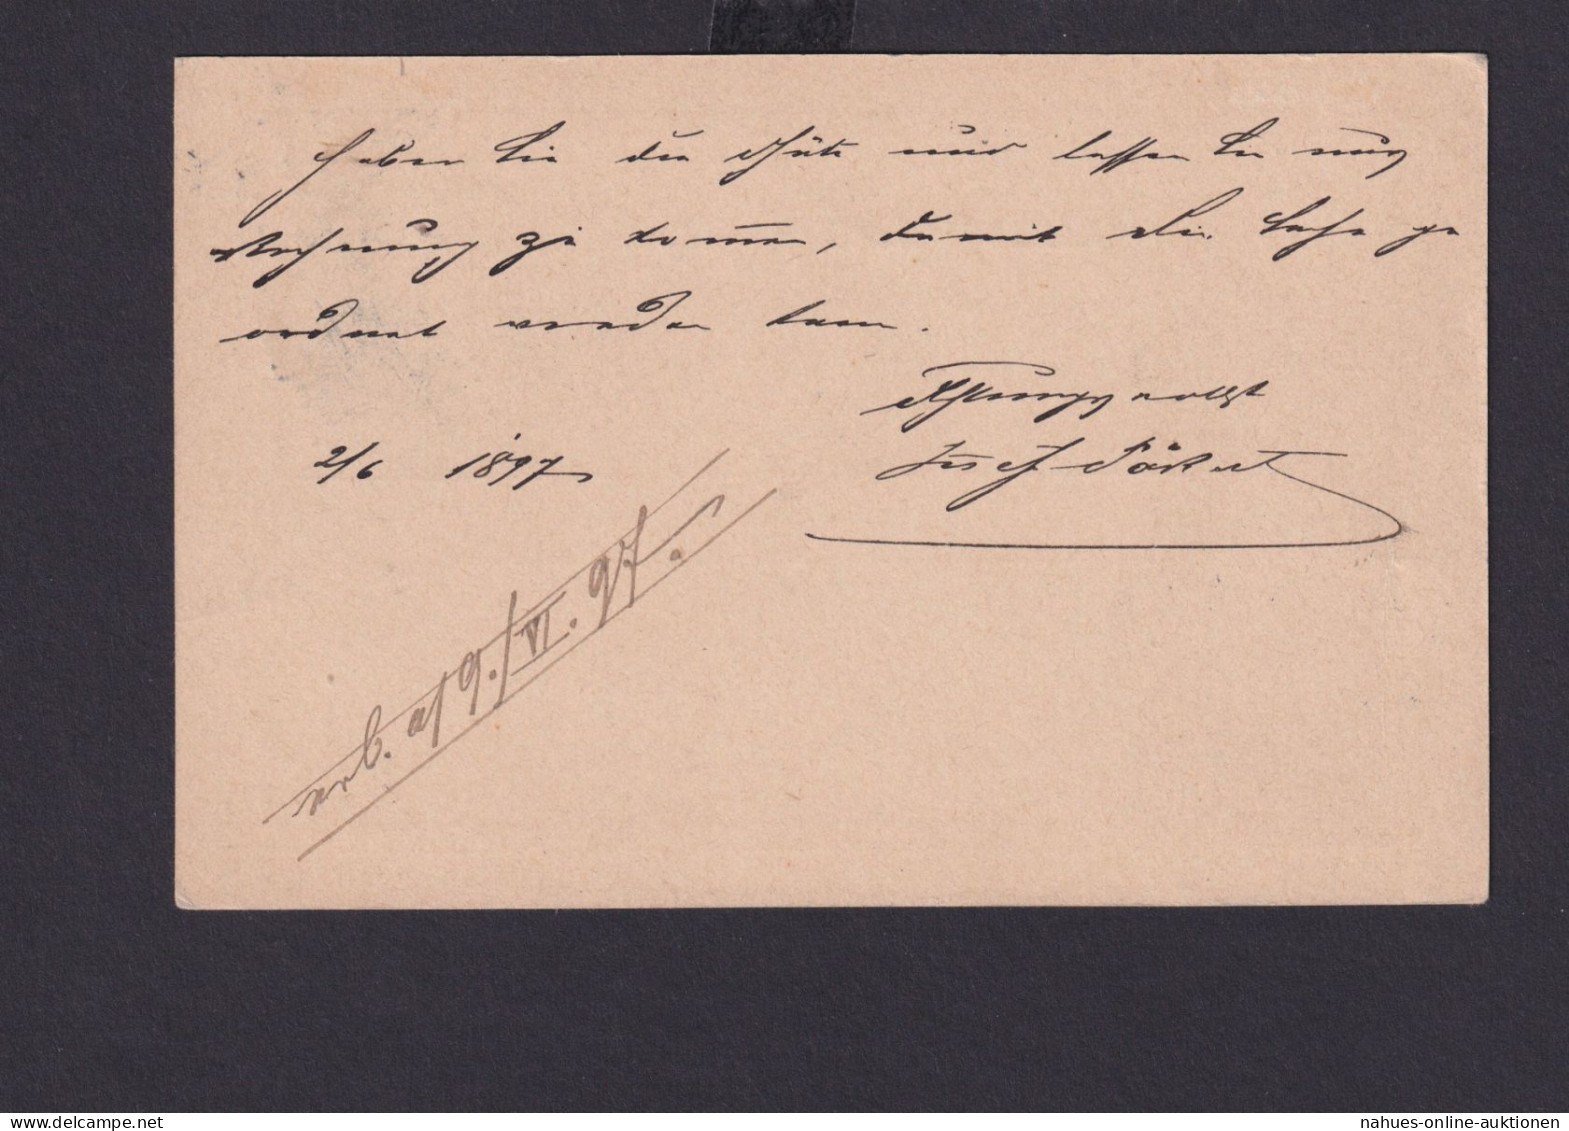 Haben Sie die Güte und lassen Sie mir
Rechnung zu kommen, damit die Sache ge
ordnet werden kann.
Achtungsvollst
Josef
2/6 1897
erb. a/ 9./VI. 97.
www.delcampe.net
nahues-online-auktionen